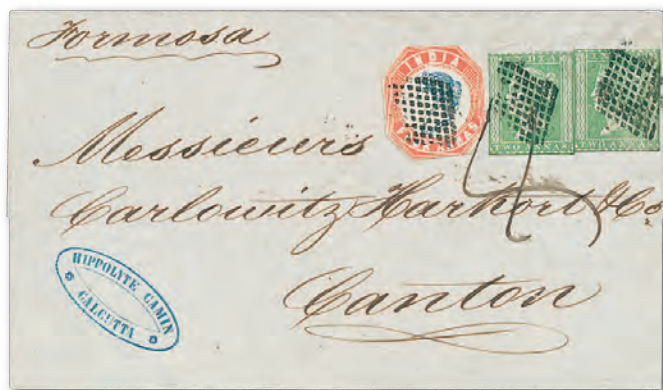 Formosa
INDIA
FOUR ANNAS
TWO ANNAS
TWO ANNAS
Messieurs
Carlowitz Harkort & Co
Canton
HIPPOLYTE CAMIN
CALCUTTA